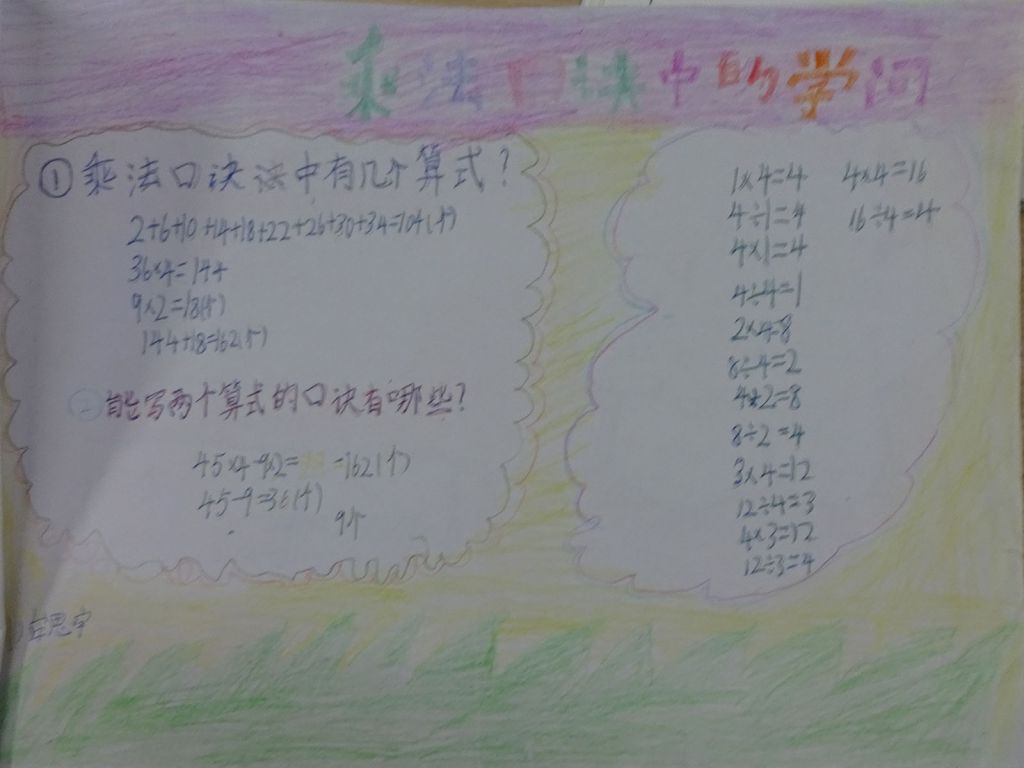 乘法口诀中的学问
①乘法口诀法中有几个算式?
2+6+10+14+18+22+26+30+34=104(个)
36×4=144
9×2=18(个)
144+18=162(个)
二能写两个算式的口诀有哪些?
45×4-9×2= =162(个)
45-9=36(个)
9个
思宇
1×4=4
4÷1=4
4×1=4
4÷4=1
2×4=8
8÷4=2
4×2=8
8÷2=4
3×4=12
12÷4=3
4×3=12
12÷3=4
4×4=16
16÷4=4